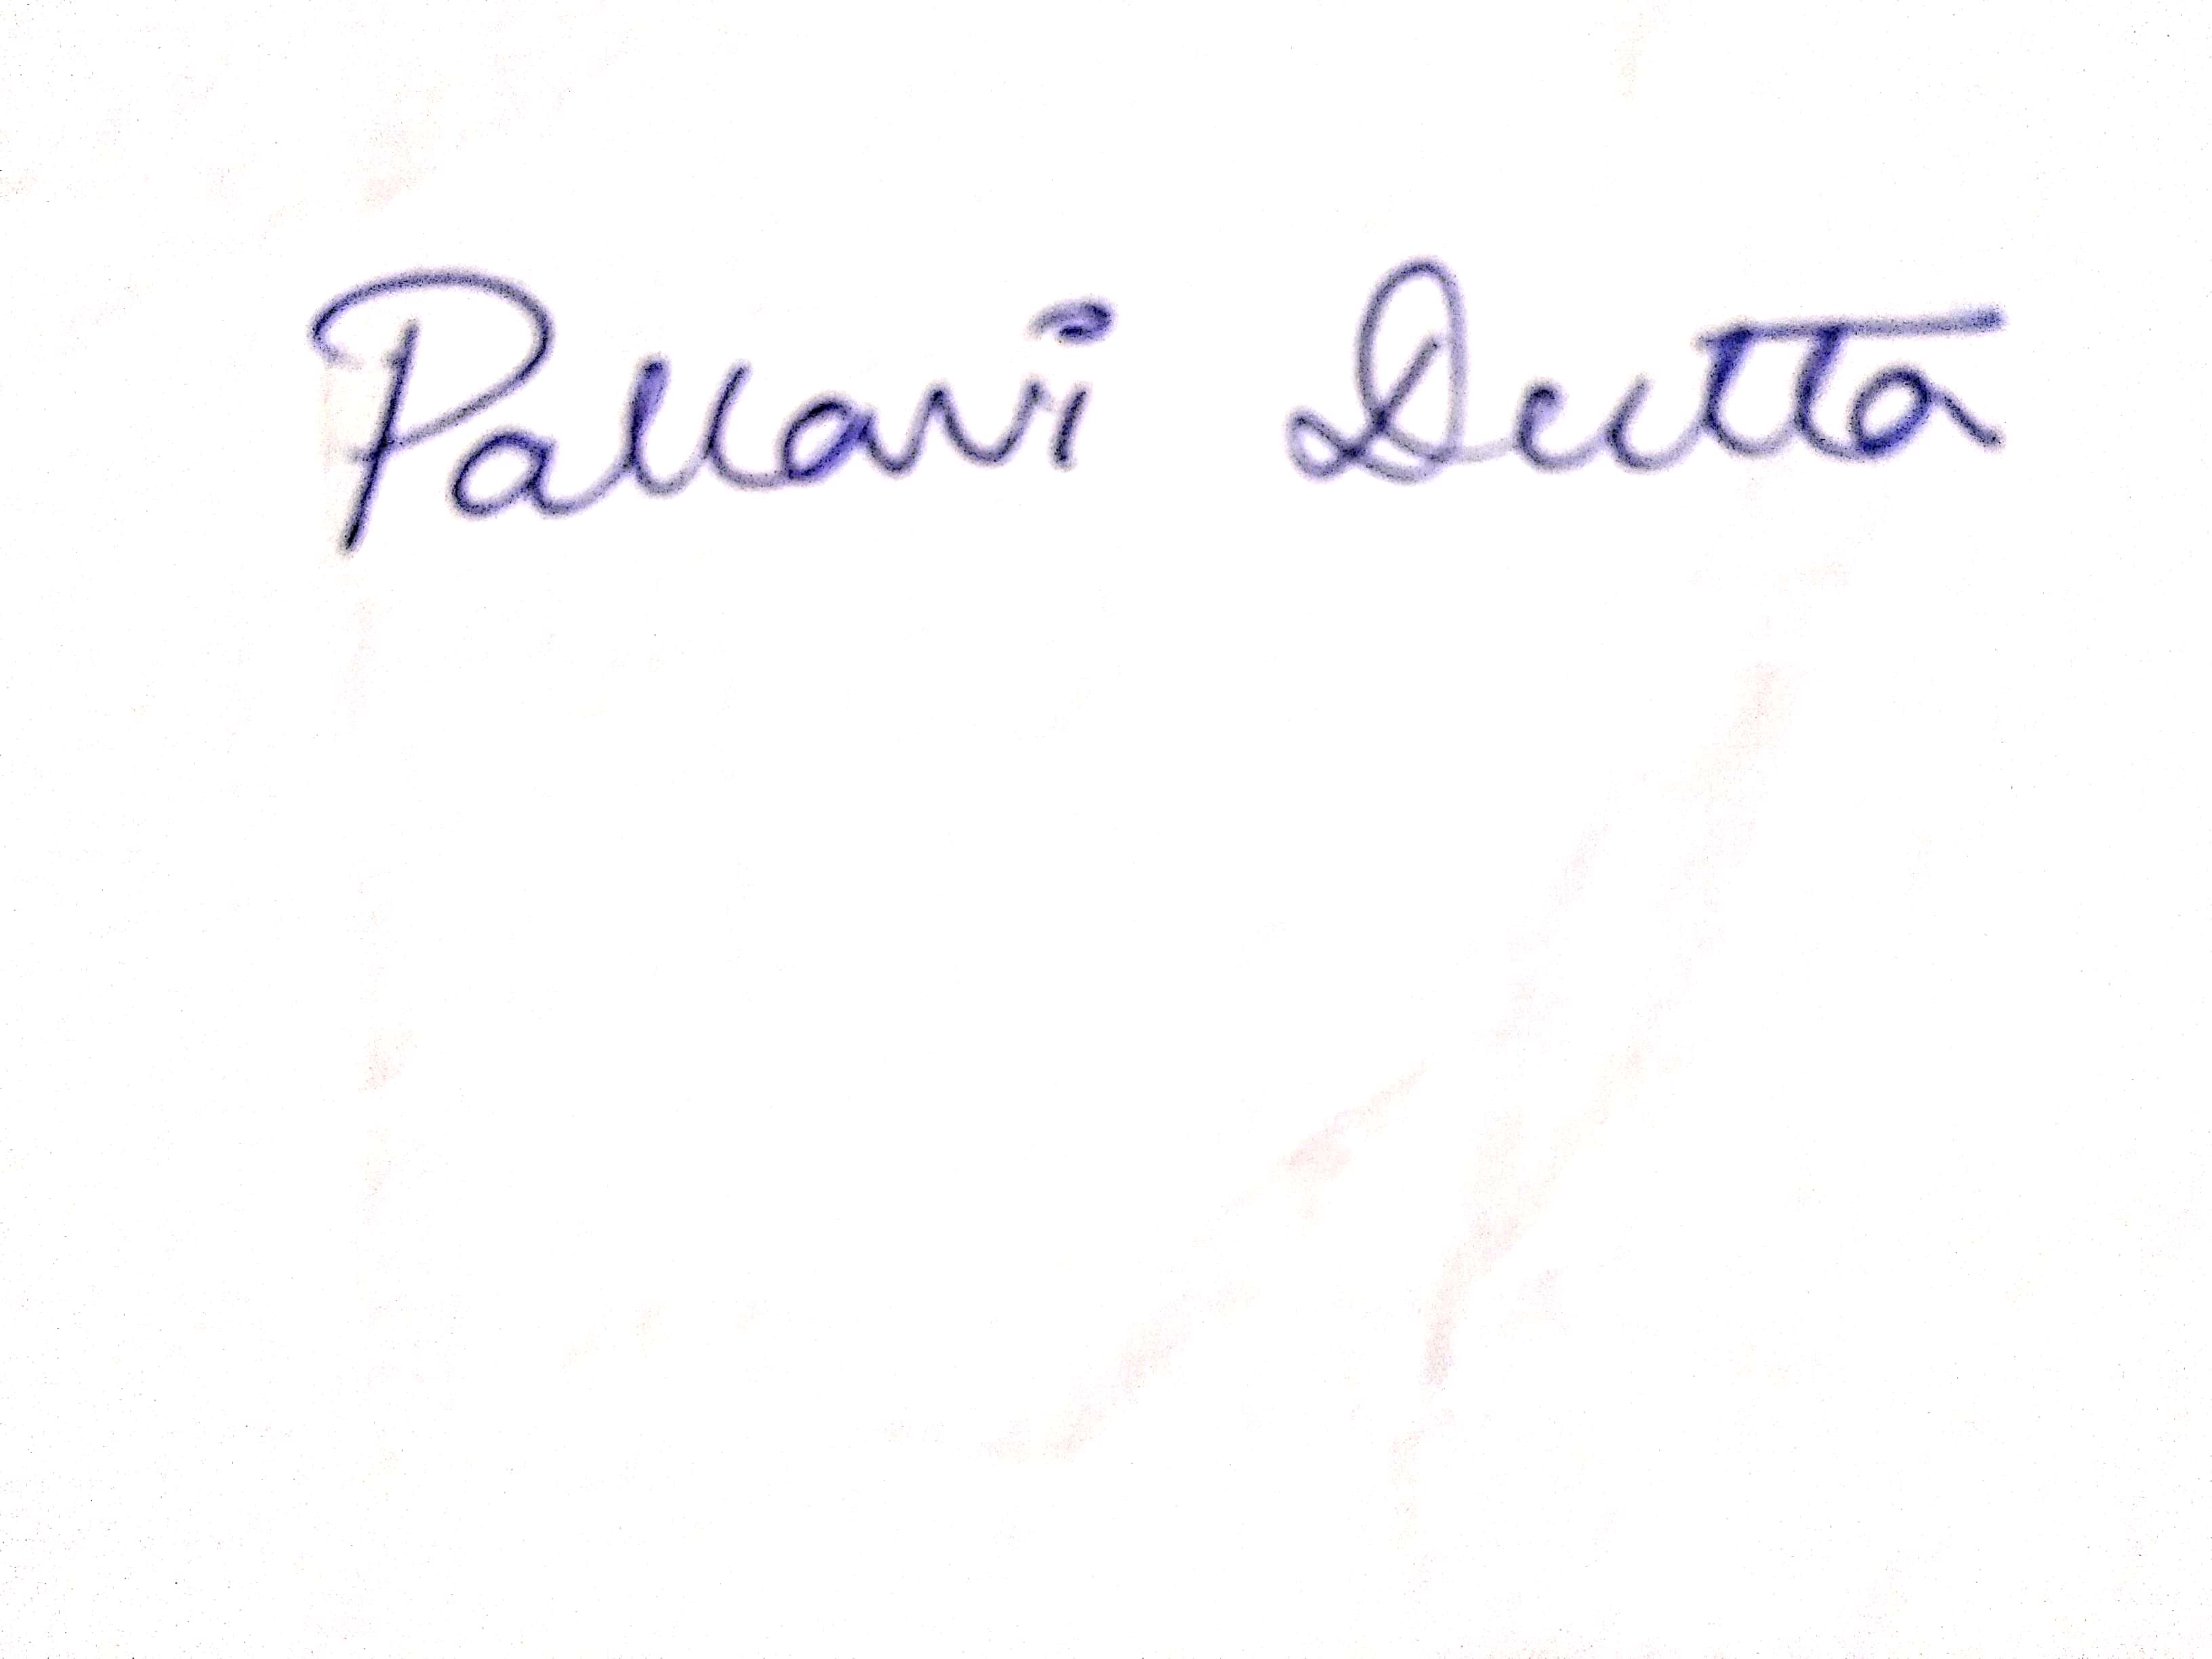 Pallavi Dutta